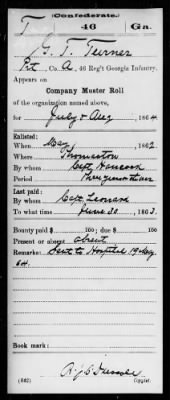 (Confederate.)
T 46 Ga.
G. T. Turner
Pvt, Co. A, 46 Reg't Georgia Infantry.
Appears on
Company Muster Roll
of the organization named above,
for July & Aug, 1864.
Enlisted:
When May, 1862.
Where Thomaston
By whom Capt. Hancock
Period Three years or the war
Last paid:
By whom Capt Leonard
To what time June 30, 1863.
Bounty paid $ 100; due $ 100
Present or absent absent
Remarks: Sent to Hospital 19 May
64.
Book mark:
(642) Copyist.